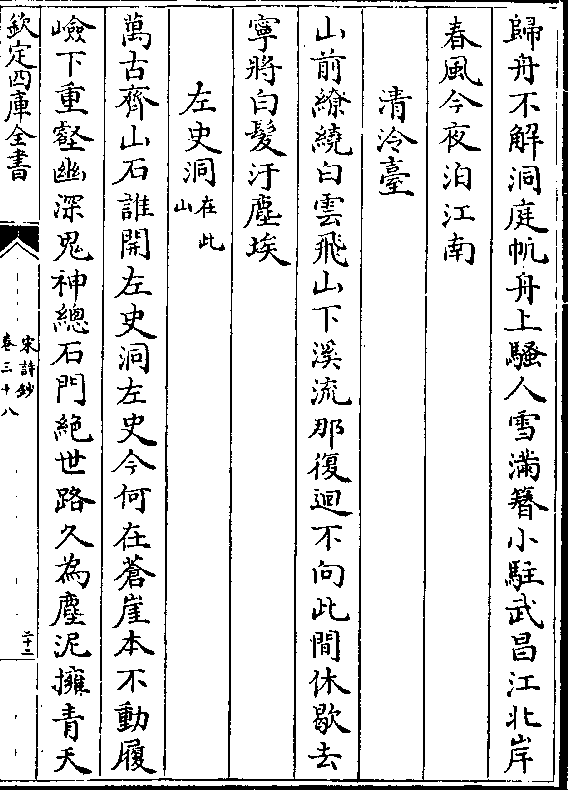 歸舟不解洞庭帆舟上騷人雪滿簪小駐武昌江北岸
春風今夜泊江南
清泠臺
山前繚繞白雲飛山下溪流那復迴不向此間休歇去
寧將白髮汙塵埃
左史洞在此山
萬古齊山石誰開左史洞左史今何在蒼崖本不動履
嶮下重壑幽深鬼神總石門絕世路久為塵泥擁青天
欽定四庫全書
宋詩鈔
卷三十八
二十二